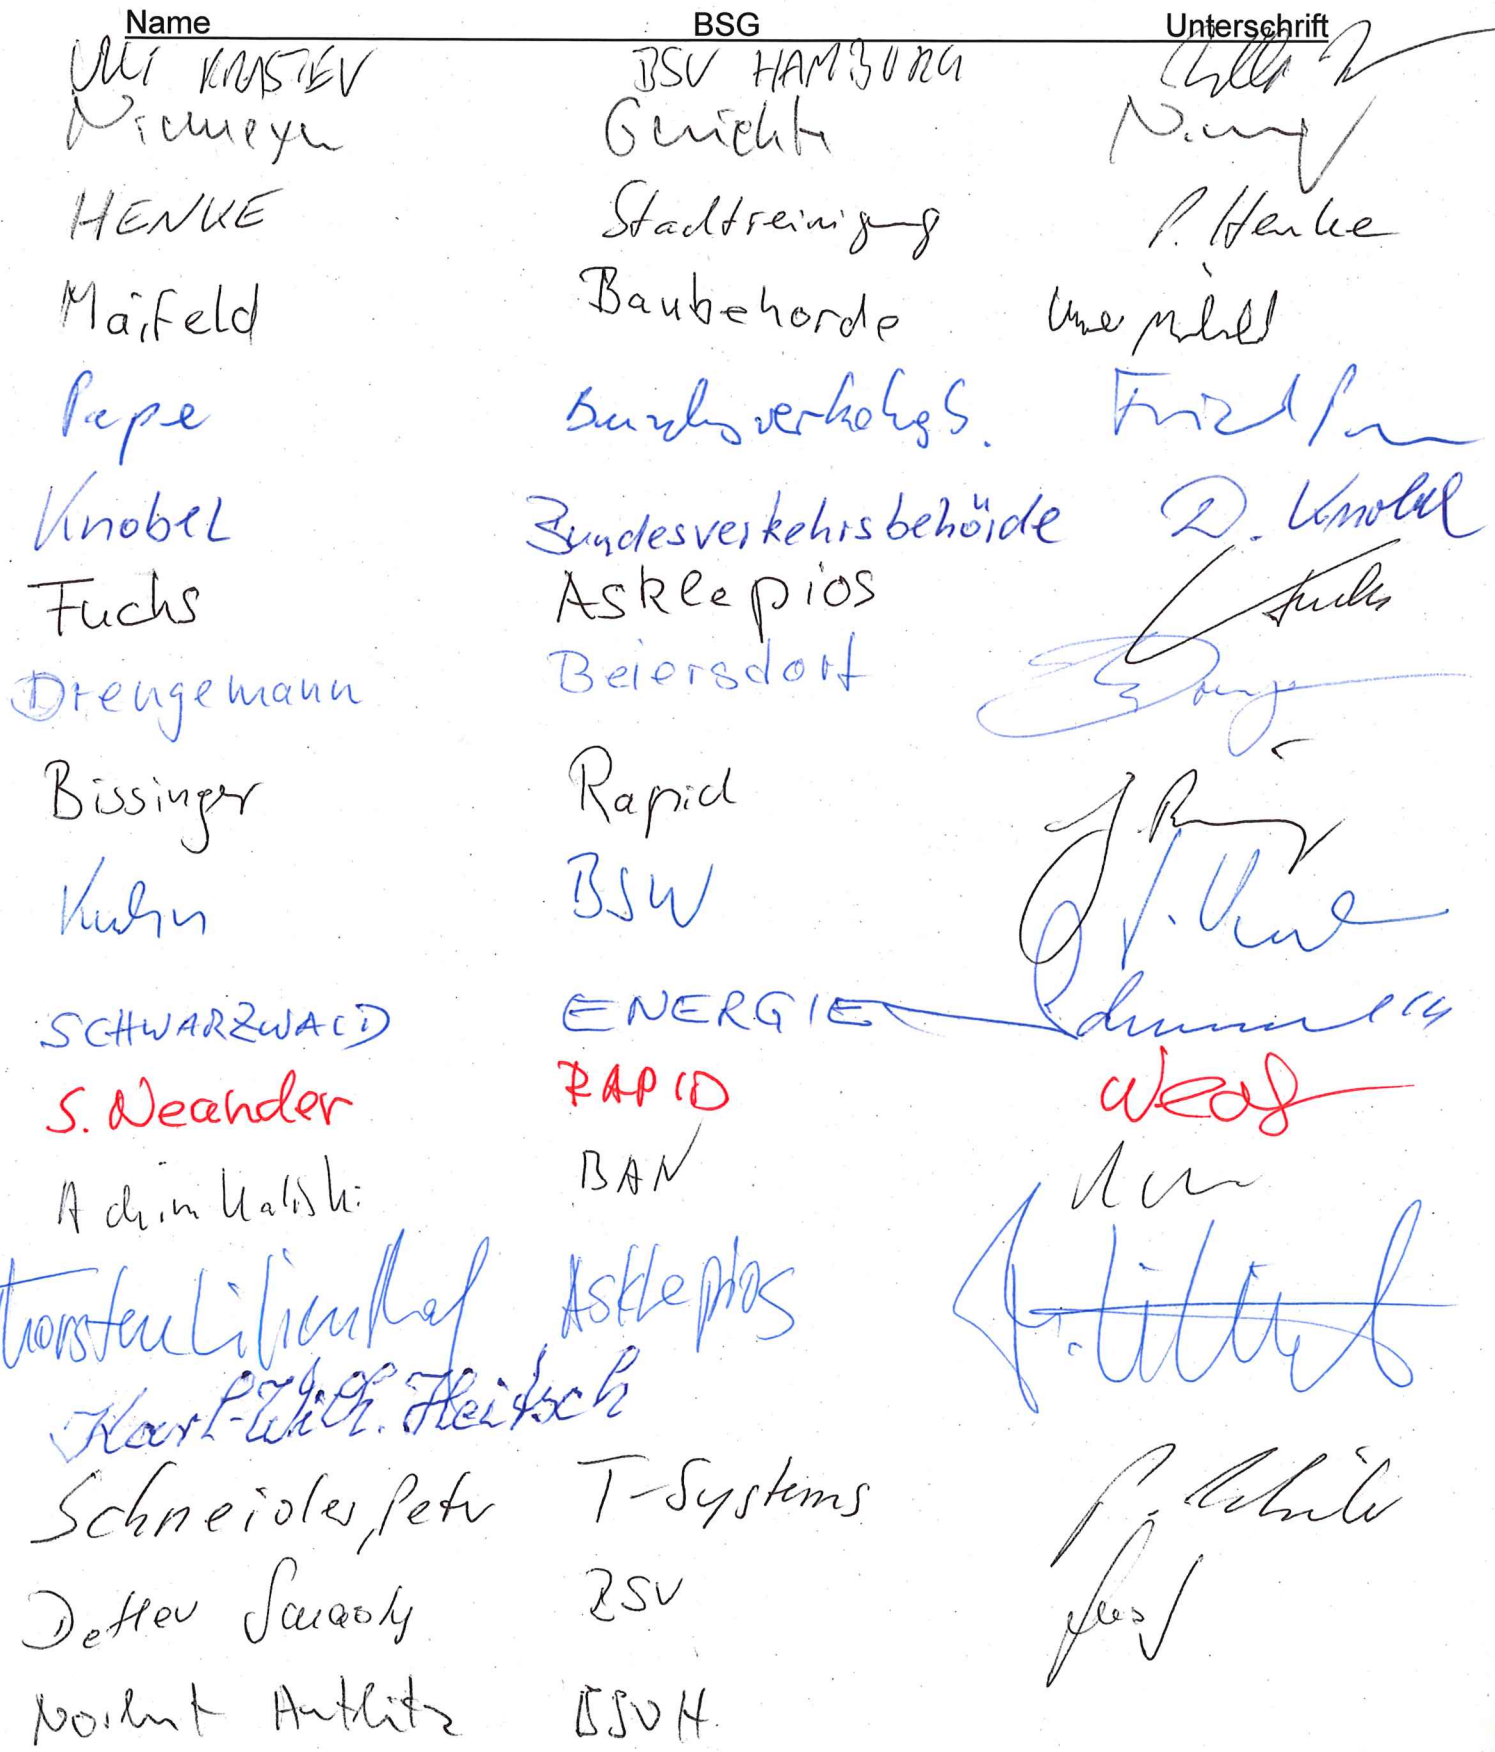 Name BSG Unterschrift
Ulli BSV HAMBURG
Niemeyer Gerichte
HENKE Stadtreinigung P. Henke
Maifeld Baubehorde Uwe
Pape
Knobel Bundesverkehrsbehörde D. Knobel
Fuchs Asklepios Fuchs
Drengemann Beiersdorf
Bissinger Rapid
Kuhn BSW
SCHWARZWALD ENERGIE
S. Neander RAPID
Achim Kaliski BAN
Thorsten Lilienthal Asklepios
Karl-Wilh. Heitsch
Schneider, Peter T-Systems
Detlev BSV
Norbert Antlitz BSVH